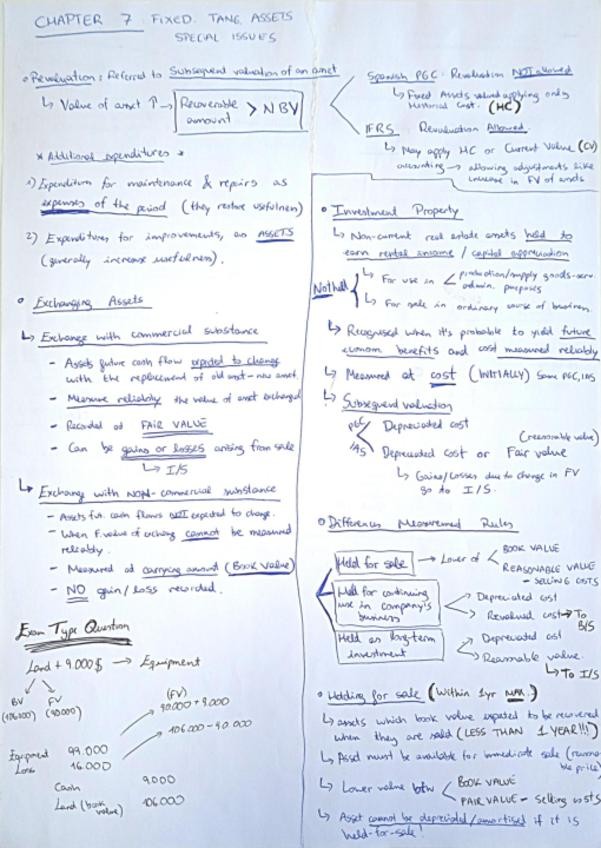 CHAPTER 7 FIXED. TANG. ASSETS
SPECIAL ISSUES
Revaluation: Referred to Subsequent valuation of an asset
↳ Value of asset ↑ → Recoverable amount > NBV
* Additional expenditures *
1) Expenditures for maintenance & repairs as
expenses of the period (they restore usefulness)
2) Expenditures for improvements, as ASSETS
(generally increase usefulness).
Exchanging Assets
↳ Exchange with commercial substance
- Assets future cash flow expected to change
with the replacement of old asset-new asset.
- Measure reliably the value of asset exchanged
- Recorded at FAIR VALUE
- Can be gains or losses arising from sale
↳ I/S
↳ Exchange with NON-commercial substance
- Assets fut. cash flows NOT expected to change.
- When F. value of exchang cannot be measured
reliably.
- Measured at carrying amount (Book Value)
- NO gain/loss recorded.
Exam Type Question
Land + 9.000$ → Equipment
BV FV
(106000) (90000)
(FV)
90.000 + 9.000
106.000 - 90.000
Equipment 99.000
Loss 16.000
Cash 9.000
Land (book value) 106.000
Spanish PGC: Revaluation NOT allowed
↳ Fixed Assets valued applying only
Historical Cost. (HC)
IFRS Revaluation Allowed.
↳ May apply HC or Current Value (CV)
accounting → allowing adjustments like
increase in FV of assets
Investment Property
↳ Non-current real estate assets held to
earn rental income / capital appreciation
Not held
↳ For use in < production/supply goods-serv.
admin. purposes
↳ For sale in ordinary course of business.
↳ Recognised when it's probable to yield future
econom. benefits and cost measured reliably
↳ Measured at cost (INITIALLY) Same PGC, IAS
↳ Subsequent valuation
PGC Depreciated cost
(reasonable value)
IAS Depreciated cost or Fair value
↳ Gains/Losses due to change in FV
go to I/S.
Differences Measurement Rules
Held for sale → Lower of < BOOK VALUE
REASONABLE VALUE
- SELLING COSTS
Held for continuing
use in company's
business
Depreciated cost
Revalued cost → To
B/S
Held as long-term
investment
Depreciated cost
Reasonable value.
↳ To I/S
Holding for sale (Within 1yr MAX.)
↳ assets which book value expected to be recovered
when they are sold (LESS THAN 1 YEAR!!!)
↳ Asset must be available for immediate sale (reasona
ble price)
↳ Lower value btw < BOOK VALUE
FAIR VALUE - Selling costs
↳ Asset cannot be depreciated/amortised if it is
held-for-sale!